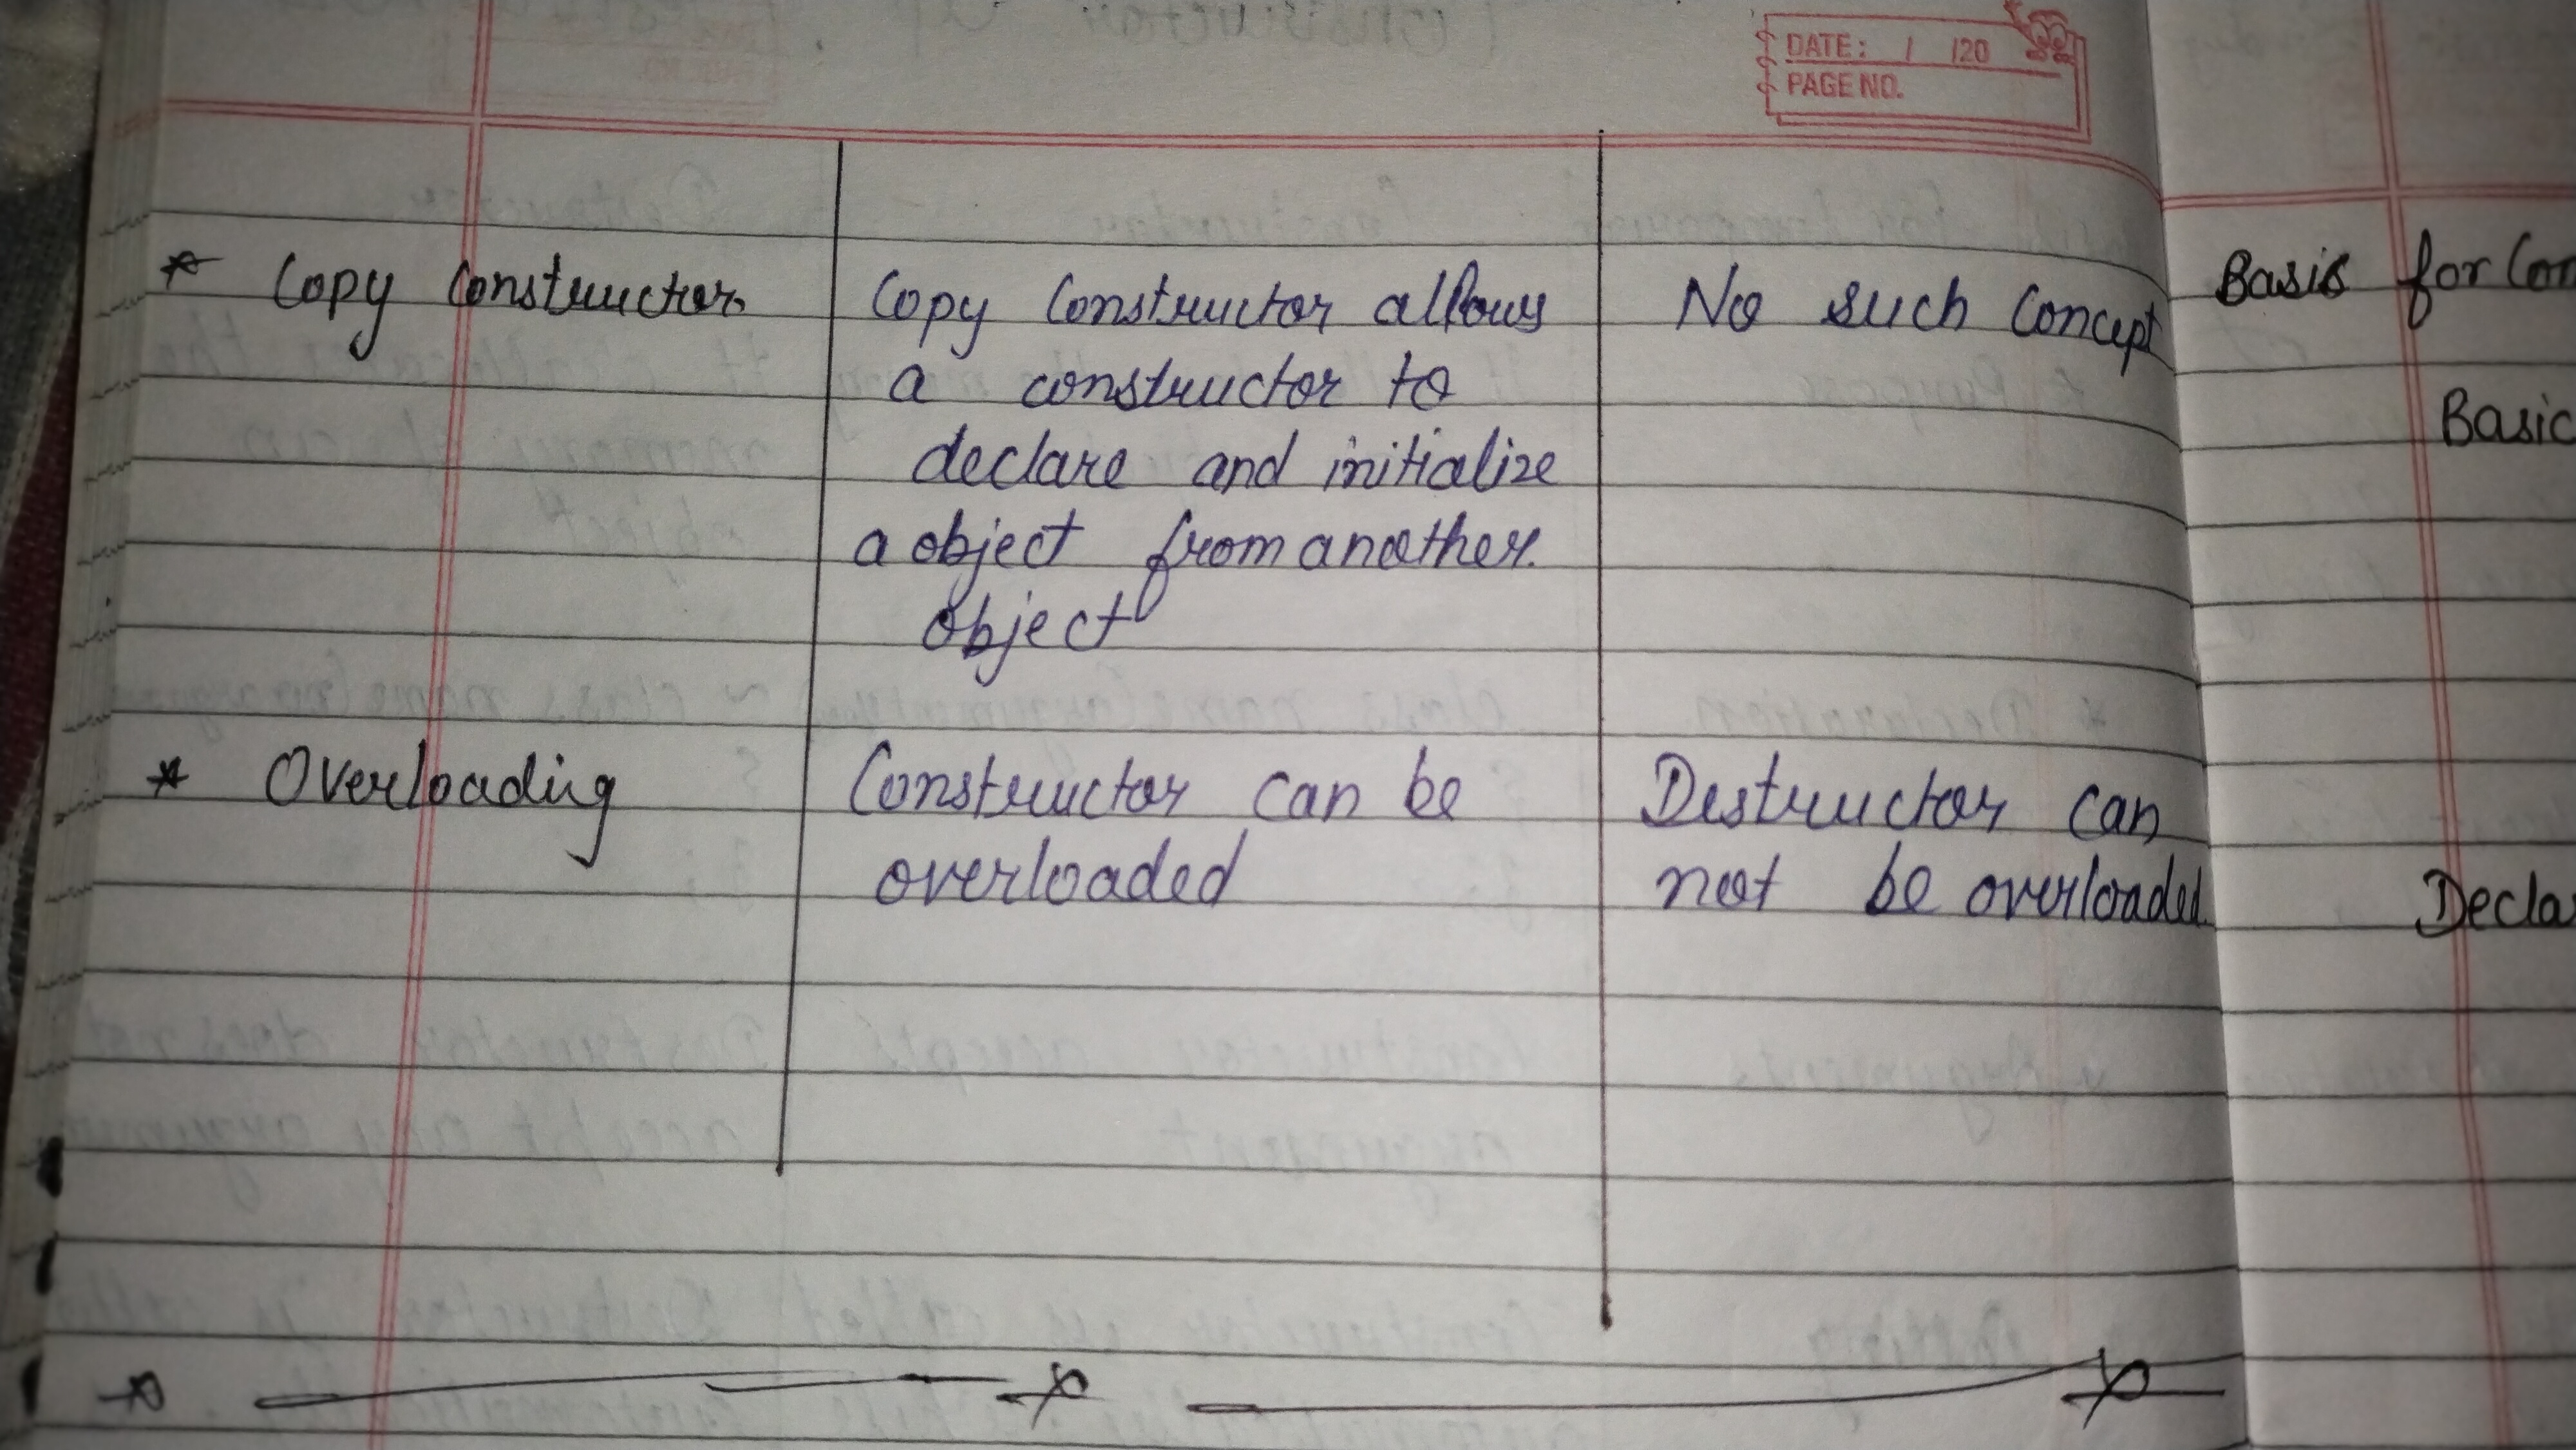 DATE: / /20
PAGE NO.
* Copy Constructor.
Copy Constructor allows
a constructor to
declare and initialize
a object from another.
object
No such Concept
* Overloading
Constructor can be
overloaded
Destructor can
not be overloaded.
Basis for Com
Basic
Decla